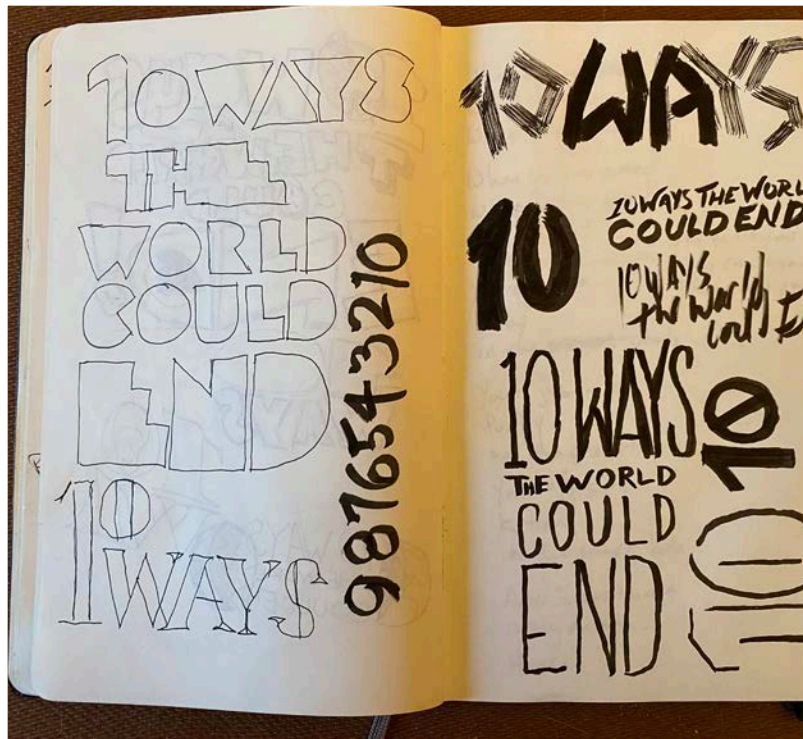 10 WAYS
THE
WORLD
COULD
END
10
WAYS
9876543210
10 WAYS
10
10 WAYS THE WORL
COULD END
10 WAYS
the World
Could E
10 WAYS
THE WORLD
COULD
END
10
10